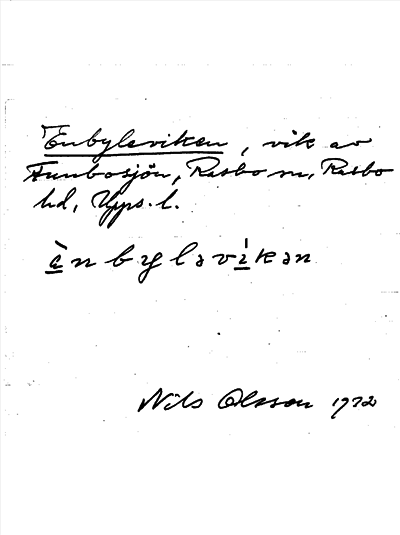 Enbyleviken, vik av
Funbosjön, Rasbo sn, Rasbo
hd, Upps. l.
ὰnbyləvi̍kən
Nils Olsson 1972